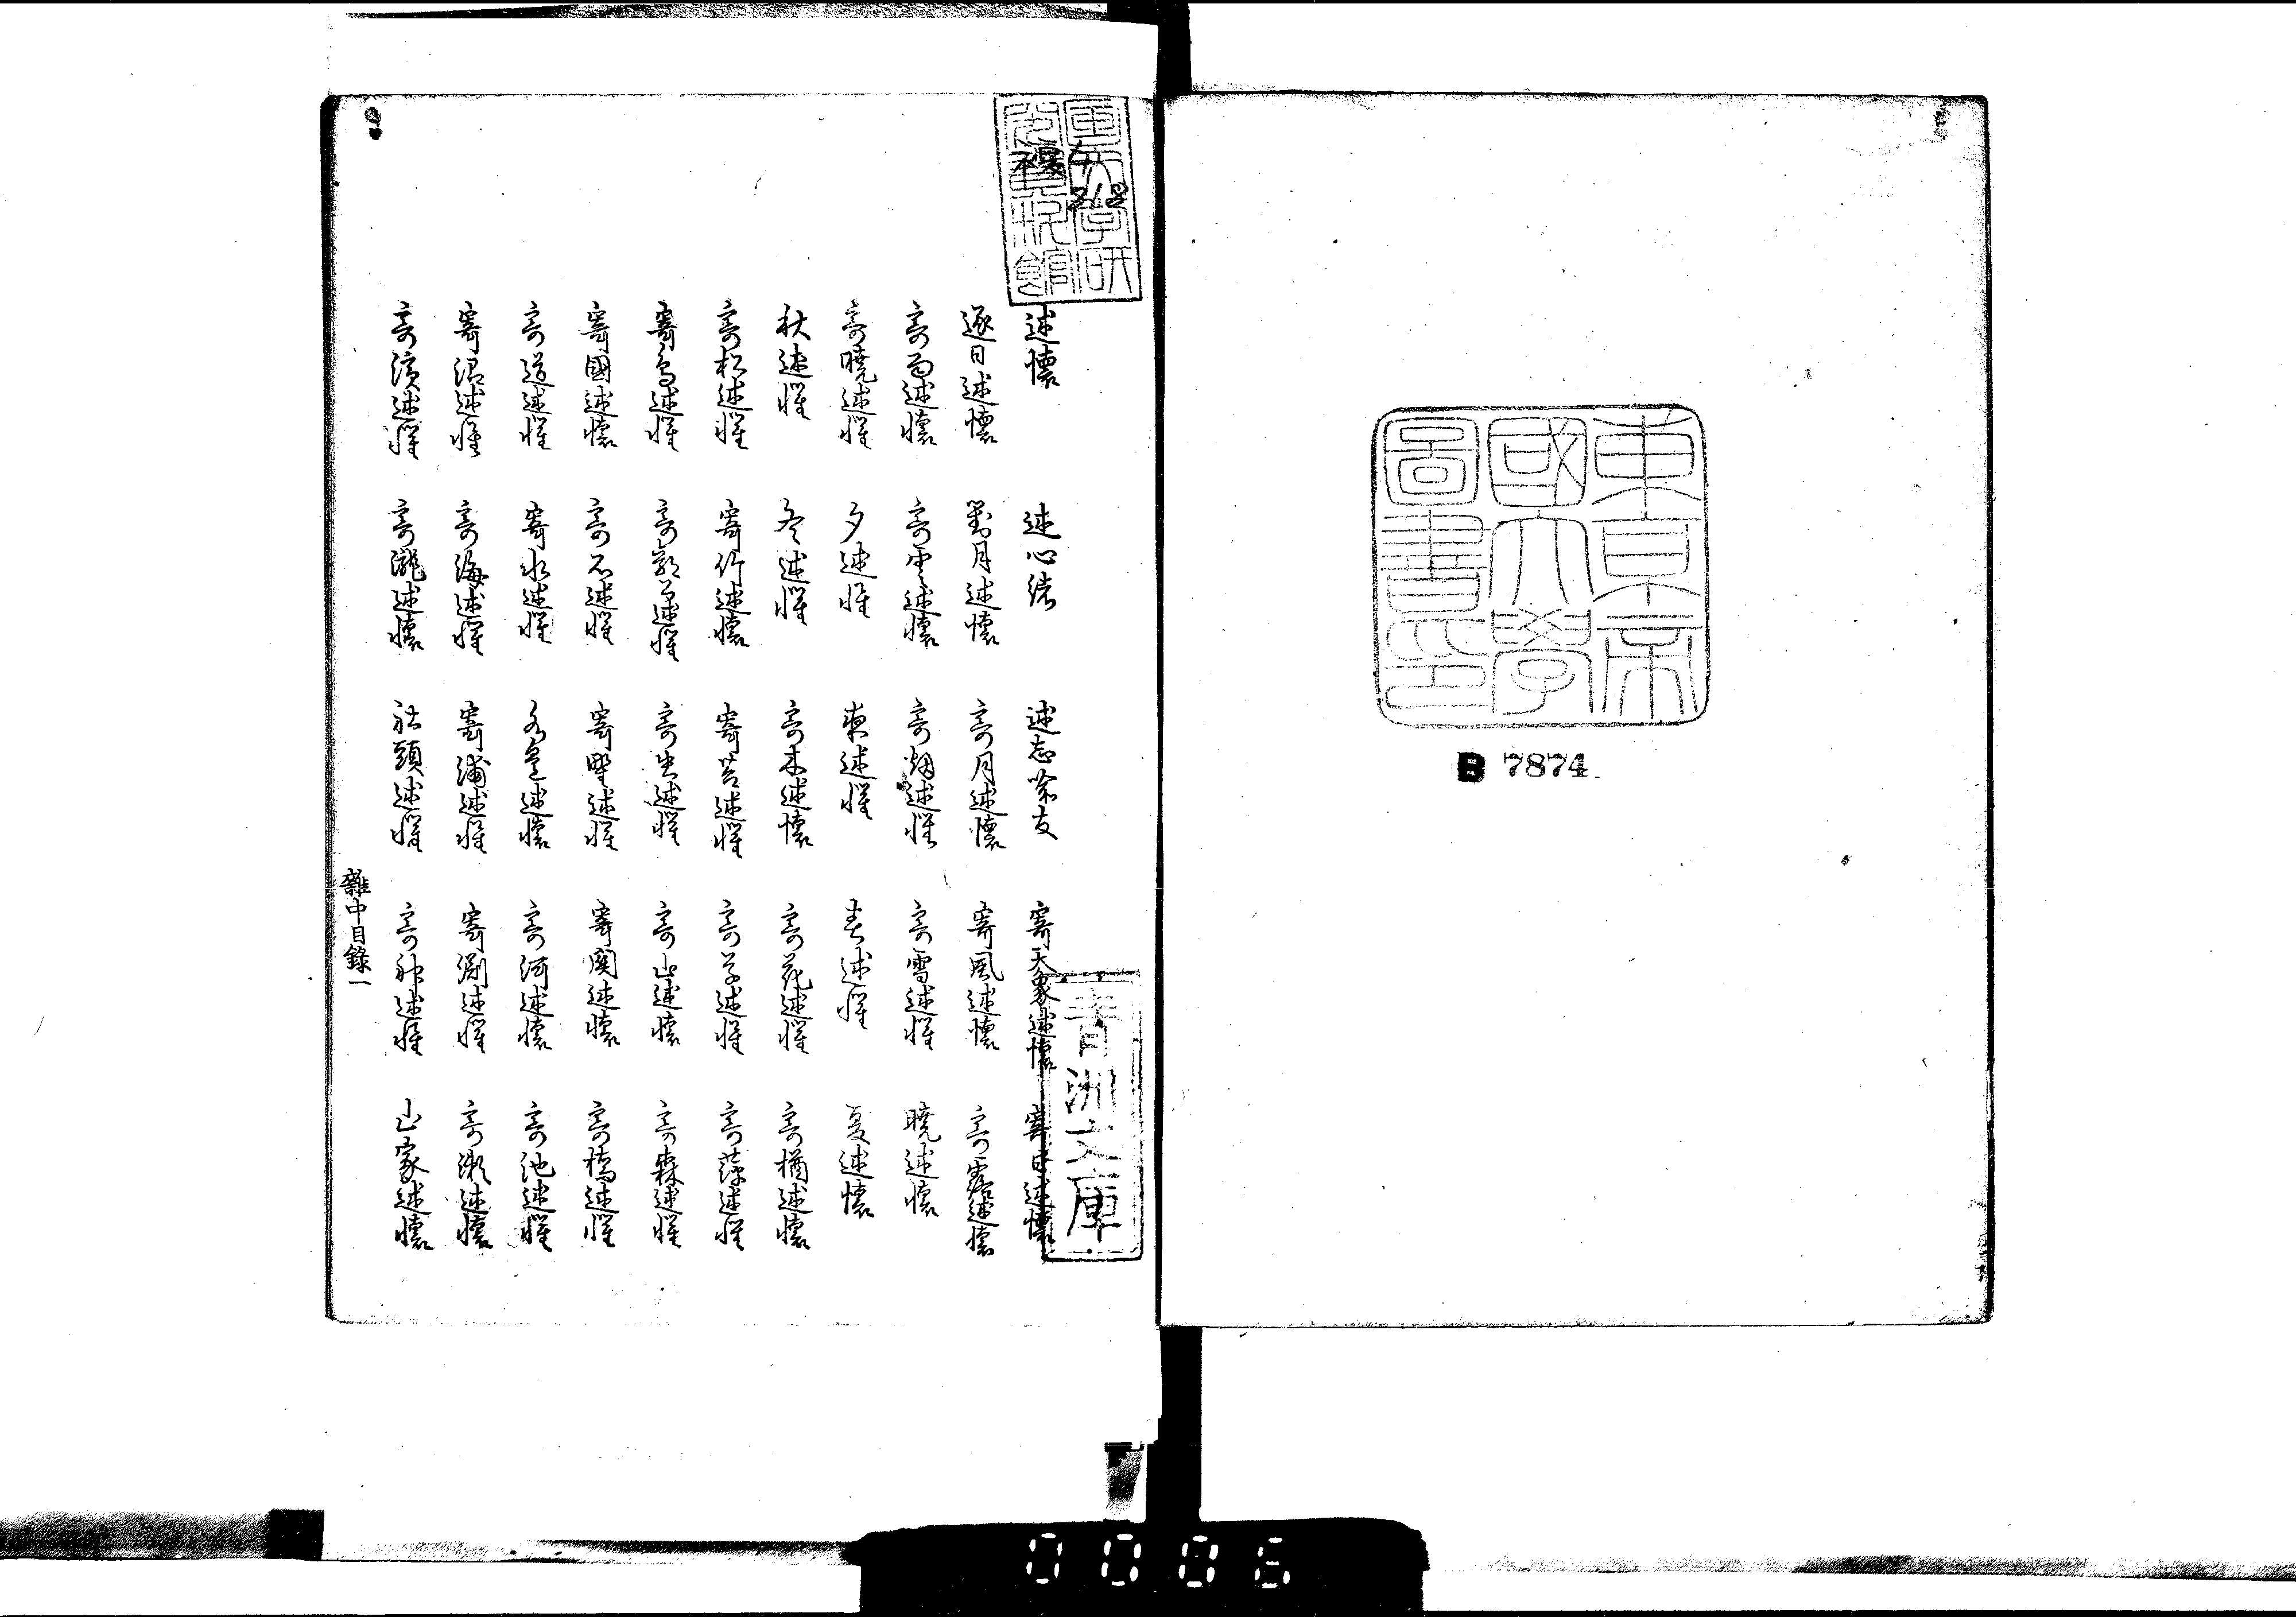 東京帝
國大學
圖書印
B 7874
述懷 述心緒 述志喩友 寄天象述懷 寄日述懷
逐日述懷 對月述懷 寄月述懷 寄風述懷 寄露述懷
寄雨述懷 寄雲述懷 寄烟述懷 寄雪述懷 曉述懷
寄曉述懷 夕述懷 東述懷 春述懷 夏述懷
秋述懷 冬述懷 寄木述懷 寄花述懷 寄楢述懷
寄松述懷 寄竹述懷 寄苔述懷 寄草述懷 寄萍述懷
寄鳥述懷 寄述懷 寄虫述懷 寄山述懷 寄森述懷
寄國述懷 寄石述懷 寄野述懷 寄関述懷 寄橋述懷
寄道述懷 寄水述懷 述懷 寄河述懷 寄池述懷
寄沼述懷 寄海述懷 寄浦述懷 寄淵述懷 寄瀬述懷
寄濱述懷 寄瀧述懷 社頭述懷 寄神述懷 山家述懷
雜中目錄一
青洲文庫
0006